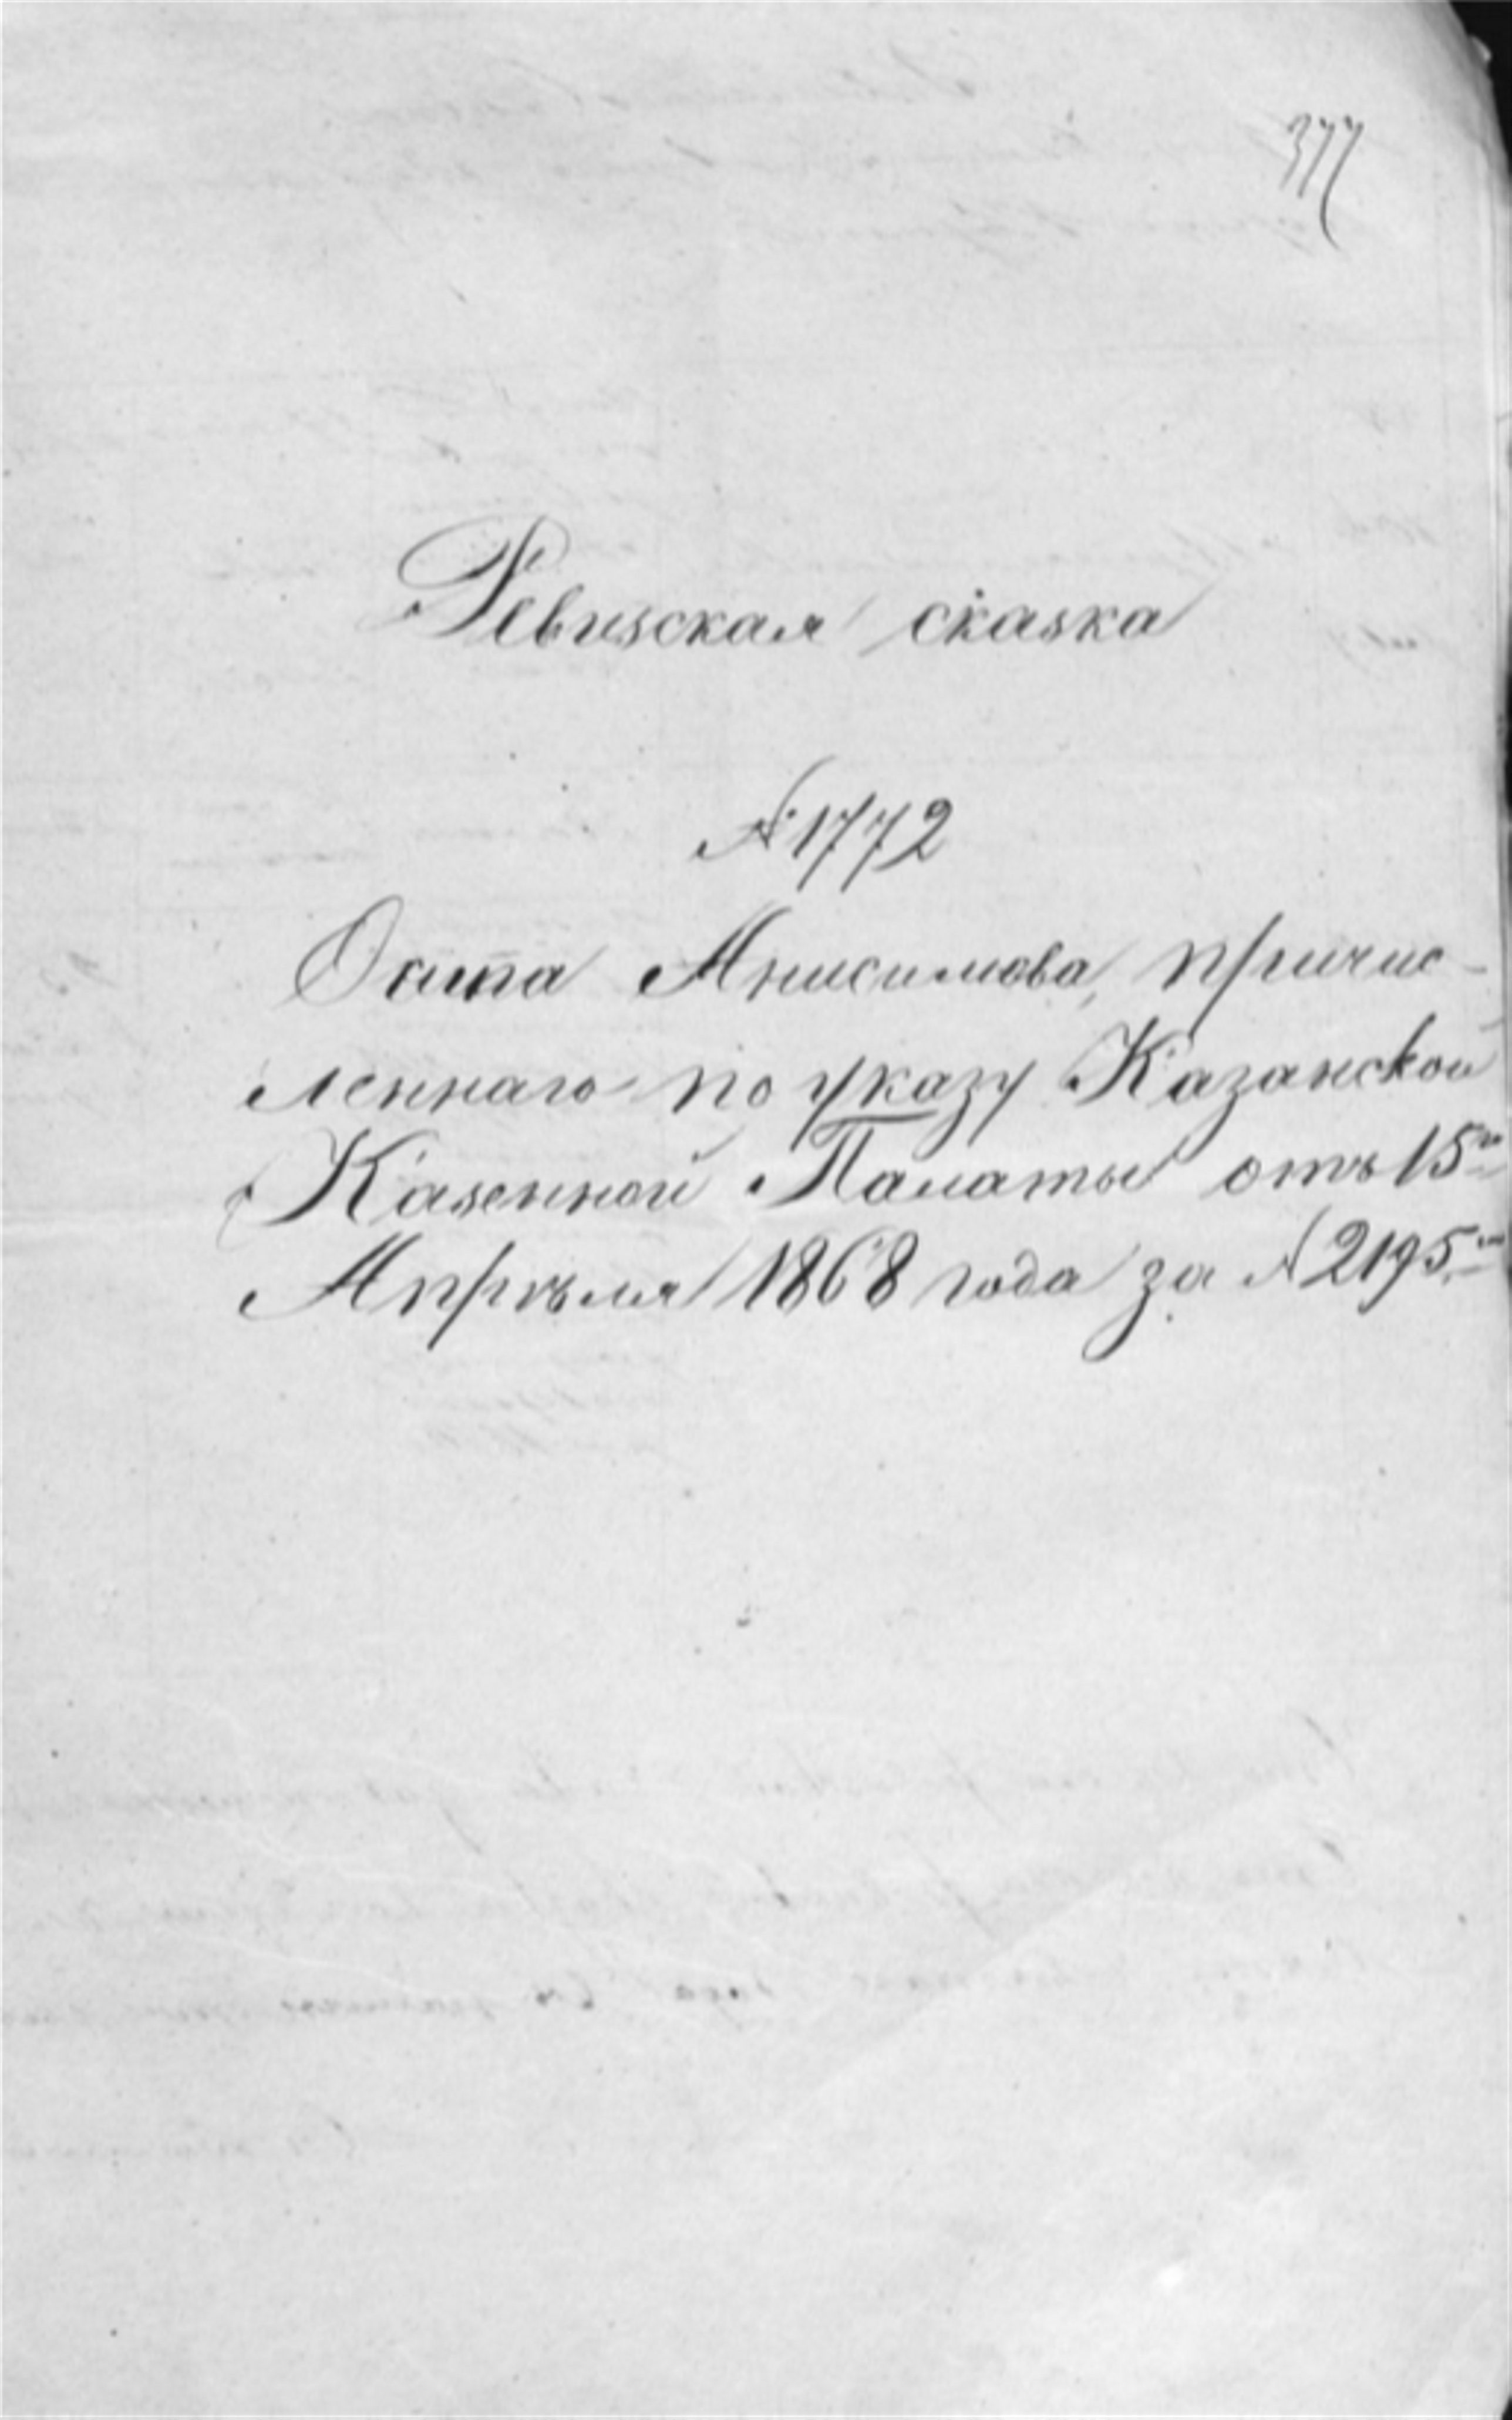 377
Ревизская сказка
№ 1772
Осипа Анисимова, причис-
леннаго по указу Казанской
Казенной Палаты отъ 15го
Апрѣля 1868 года за № 2195м